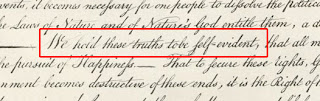 vents, it becomes necessary for one people to dissolve the political
the Laws of Nature and of Nature's God entitle them, a de
We hold these truths to be self-evident, that all m
the pursuit of Happiness.— That to secure these rights, Go
nment becomes destructive of these ends, it is the Right of